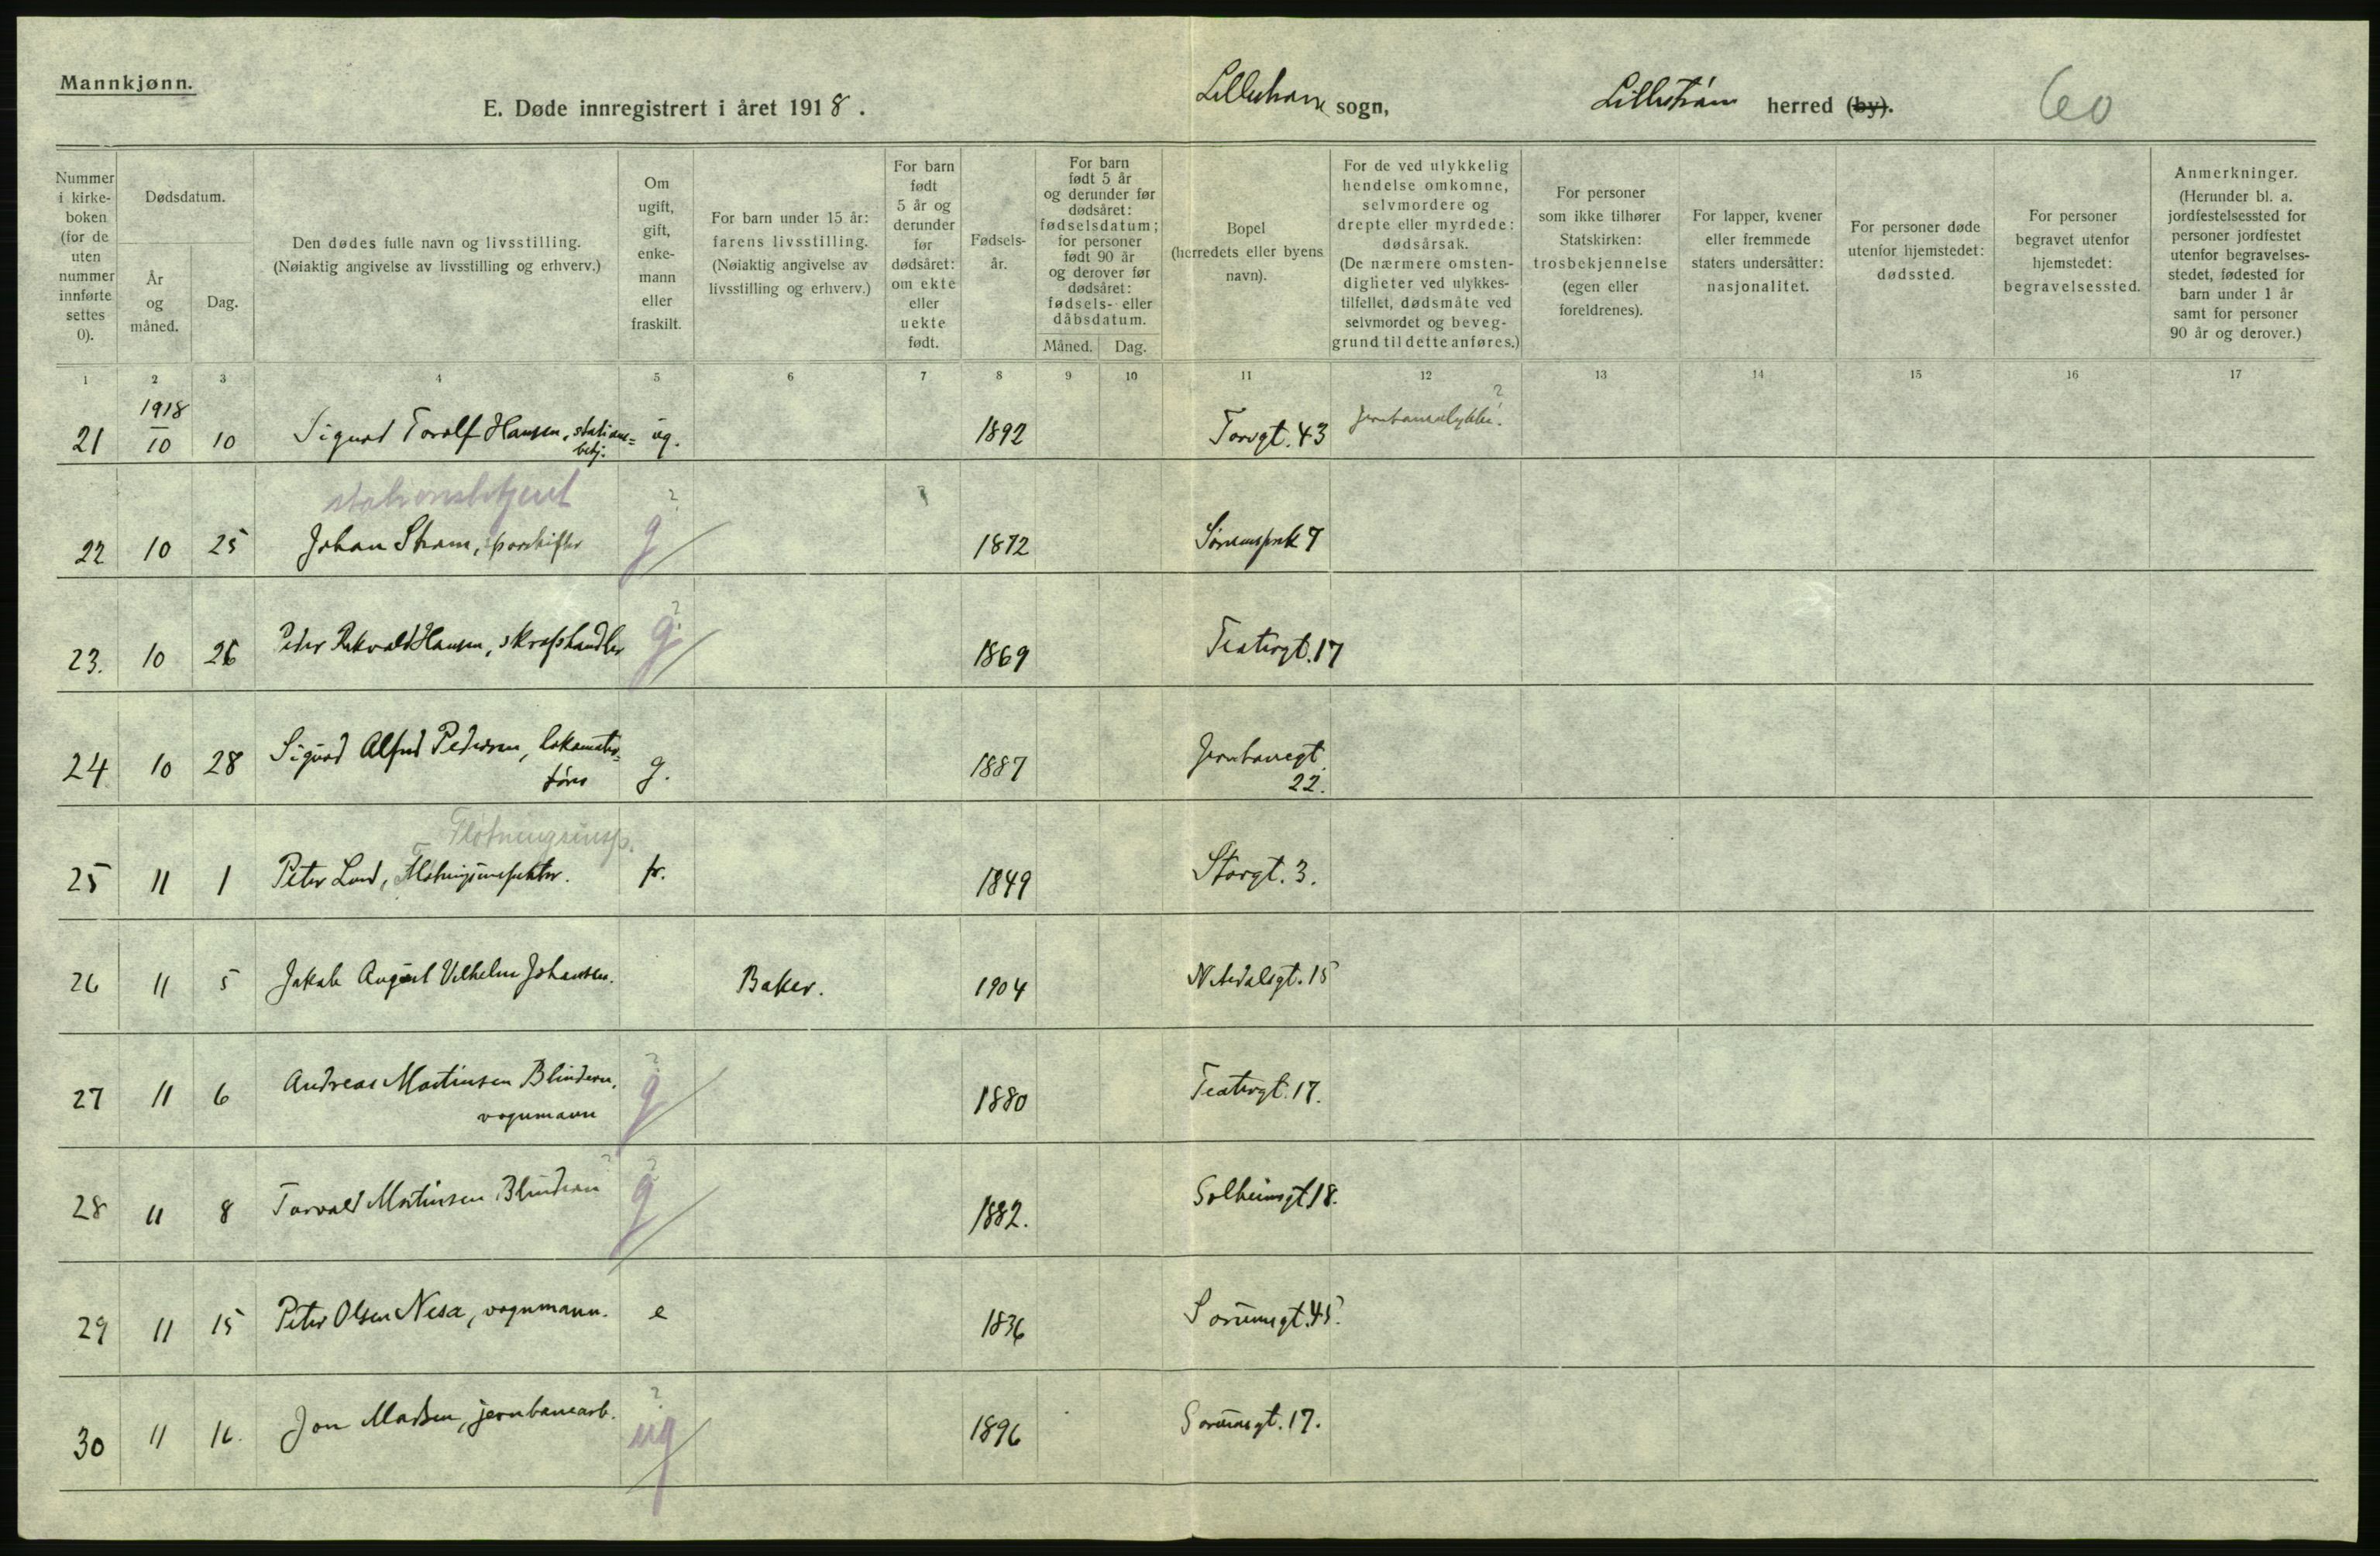 Mannkjønn.
E. Døde innregistrert i året 1918.
Lillestrøm sogn,
Lillestrøm herred (by).
60
Nummer i kirkeboken (for de uten nummer innførte settes 0).
Dødsdatum.
År og måned.
Dag.
Den dødes fulle navn og livsstilling. (Nøiaktig angivelse av livsstilling og erhverv.)
Om ugift, gift, enkemann eller fraskilt.
For barn under 15 år: farens livsstilling. (Nøiaktig angivelse av livsstilling og erhverv.)
For barn født 5 år og derunder før dødsåret: om ekte eller uekte født.
Fødselsår.
For barn født 5 år og derunder før dødsåret: fødselsdatum; for personer født 90 år og derover før dødsåret: fødsels- eller dåbsdatum.
Måned.
Dag.
Bopel (herredets eller byens navn).
For de ved ulykkelig hendelse omkomne, selvmordere og drepte eller myrdede: dødsårsak. (De nærmere omstendigheter ved ulykkestilfellet, dødsmåte ved selvmordet og beveggrund til dette anføres.)
For personer som ikke tilhører Statskirken: trosbekjennelse (egen eller foreldrenes).
For lapper, kvener eller fremmede staters undersåtter: nasjonalitet.
For personer døde utenfor hjemstedet: dødssted.
For personer begravet utenfor hjemstedet: begravelsessted.
Anmerkninger. (Herunder bl. a. jordfestelsessted for personer jordfestet utenfor begravelsesstedet, fødested for barn under 1 år samt for personer 90 år og derover.)
1 2 3 4 5 6 7 8 9 10 11 12 13 14 15 16 17
1918
21 10 10 Sigurd Torolf Hansen, stations= betj. ug. 1892 Torvgt. 43 Jernbaneulykke. ?
stationsbetjent
22 10 25 Johan Strøm, sporskifter g ? 1872 7
23. 10 26 Peder Hansen, skraphandler g ? 1869 Teatergt. 17
24 10 28 Sigurd Alfred Pedersen, lokomotiv= fører g. 1887 Jernbanegt. 22.
Fløtningsinsp.
25 11 1 Peter Lund, Fløtningsinspektør. fr. 1849 Storgt. 3.
26 11 5 Jakob August Vilhelm Johansen. Baker. 1904 Nitedalsgt. 15
27 11 6 Andreas Martinsen Blindern, vognmann g ? 1880 Teatergt. 17.
28 11 8 Torvald Martinsen Blindern ? g ? 1882. Solheimsgt. 18.
29 11 15 Peter Olsen Nesa, vognmann. e 1836 Sørumsgt. 45.
30 11 16. Jon Madsen, jernbanearb. ug ? 1896 Sørumsgt. 17.